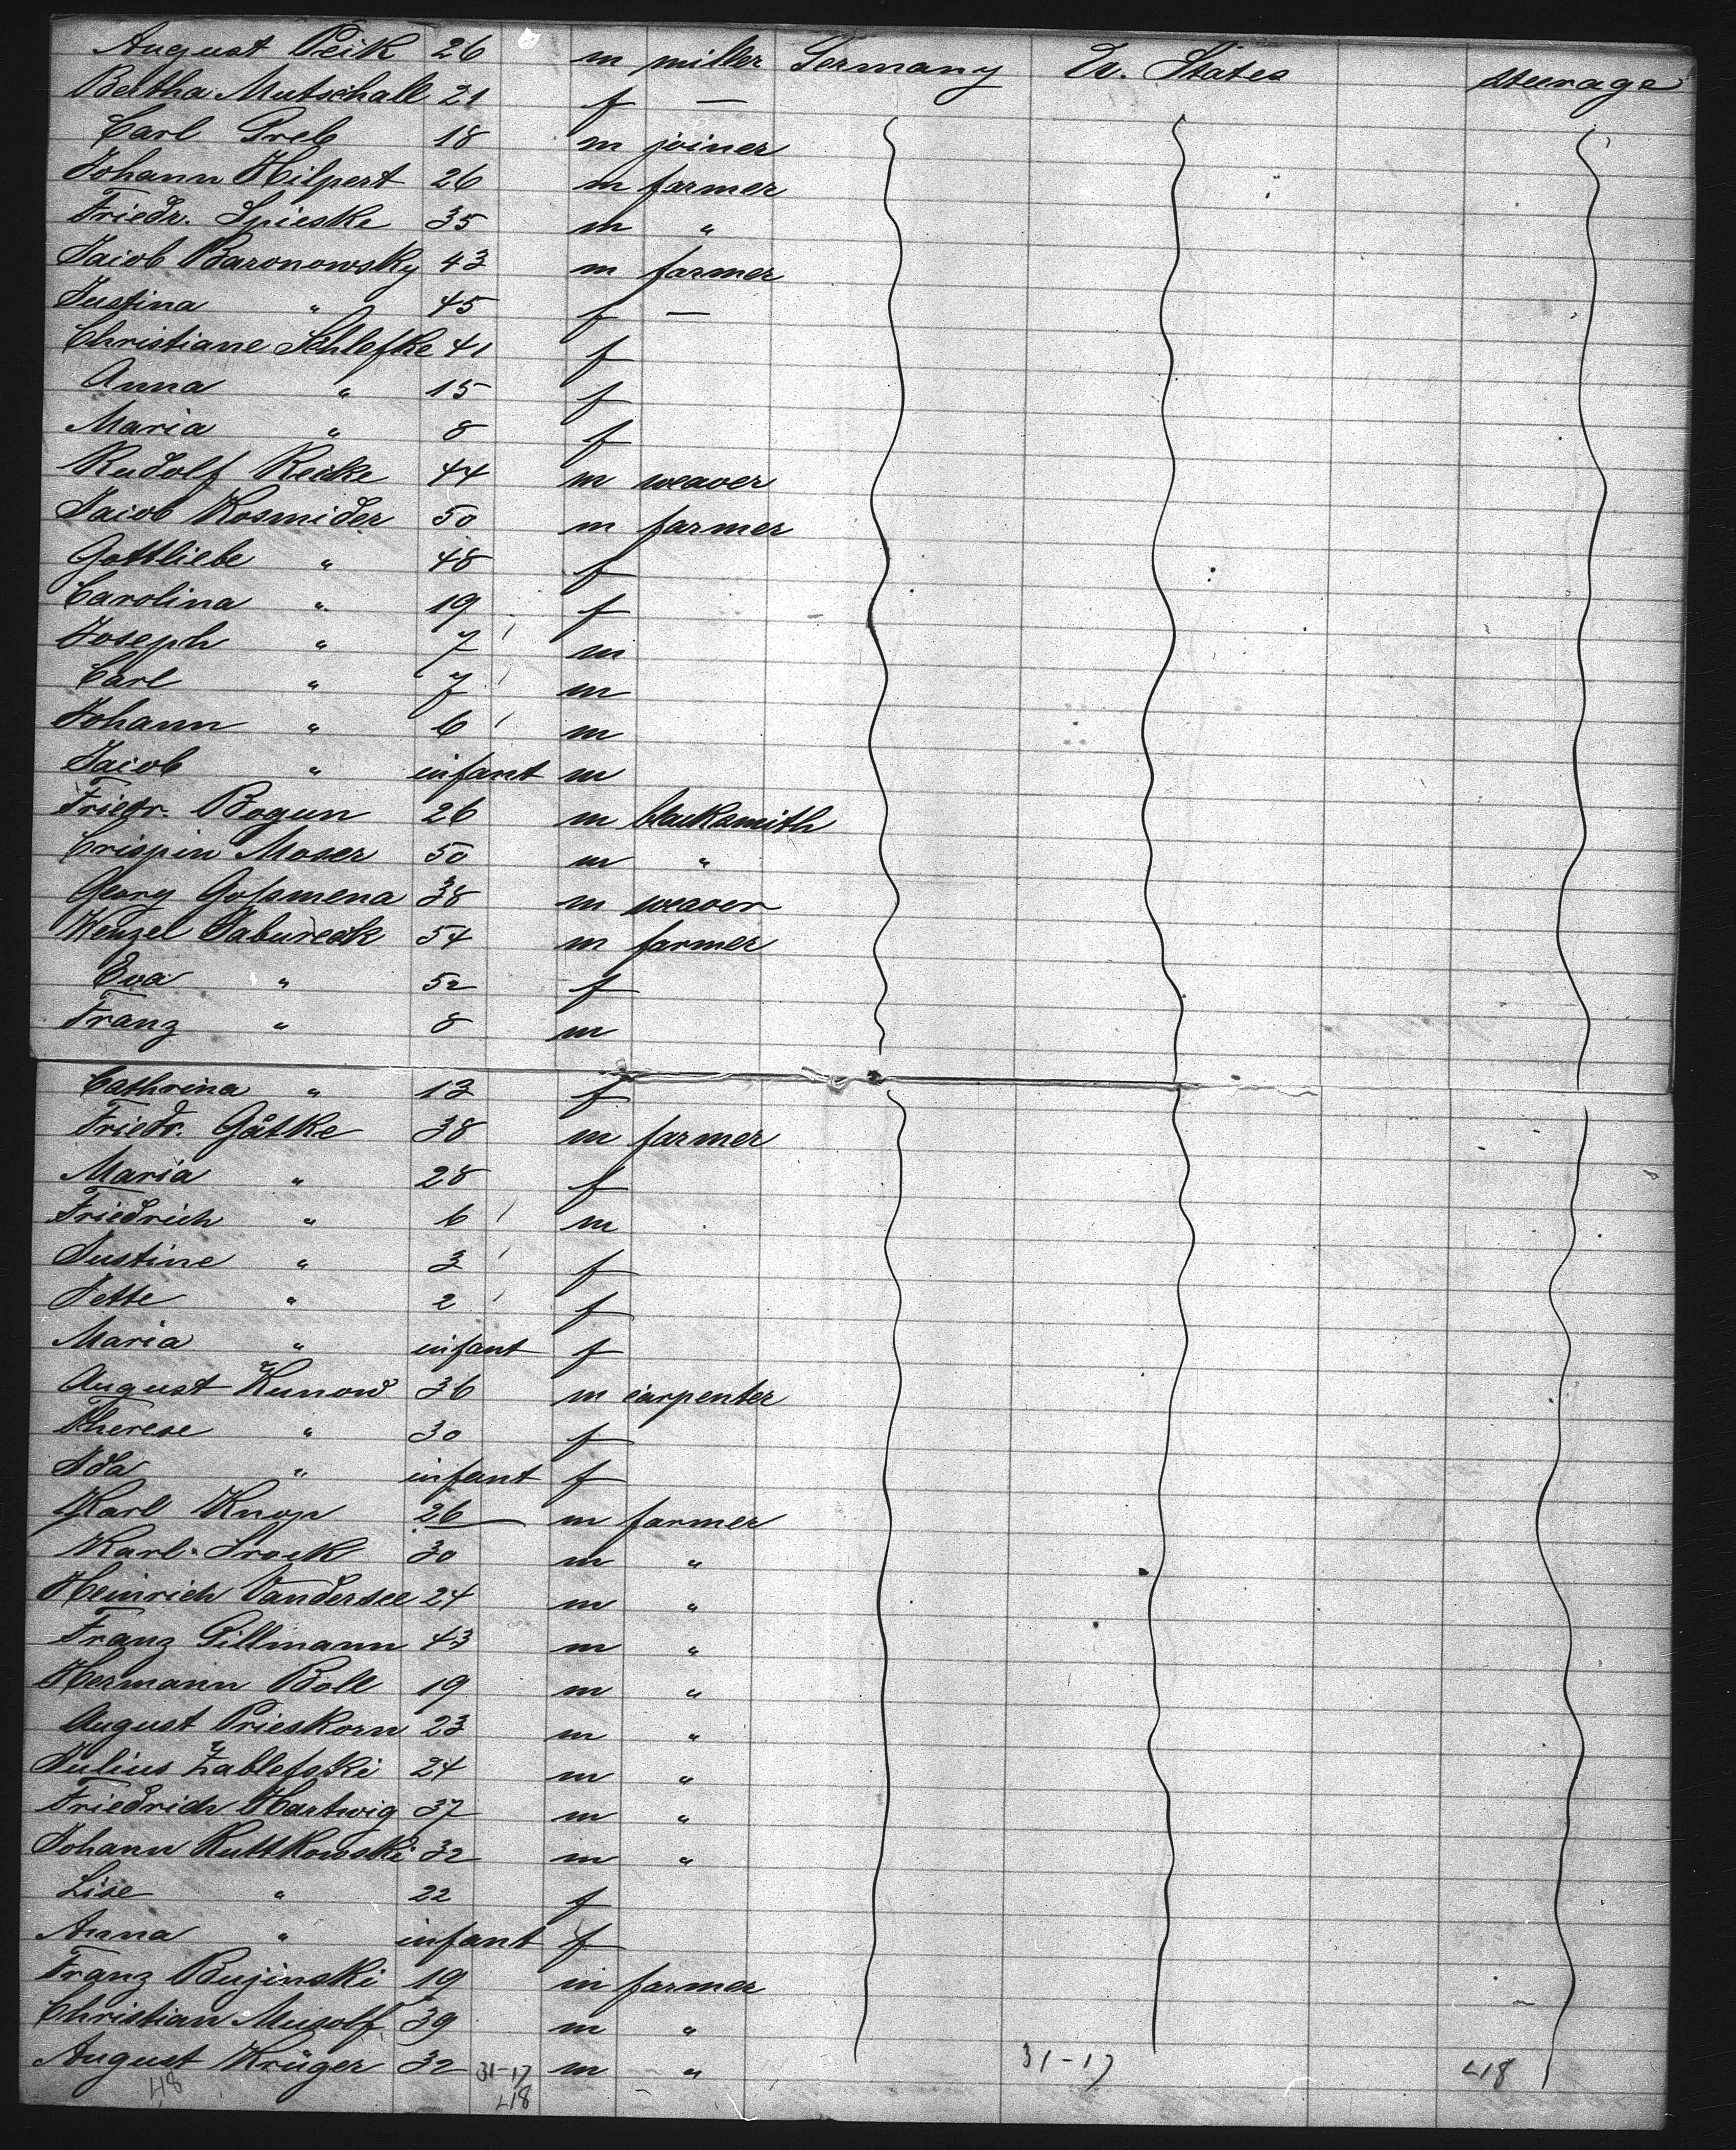 August Peik 26 m miller Germany U. States steerage
Bertha Mutschall 21 f —
Carl Greb 18 m joiner
Johann Hilpert 26 m farmer
Friedr. Spieske 35 m "
Jacob Baronowsky 43 m farmer
Justina " 45 f —
Christiane Schlefke 41 f
Anna " 15 f
Maria " 8 f
Rudolf Reicke 44 m weaver
Jacob Kosmider 50 m farmer
Gottliebe " 48 f
Carolina " 19 f
Joseph " 7 m
Carl " 7 m
Johann " 6 m
Jacob " infant m
Friedr. Bogun 26 m blacksmith
Crispin Moser 50 m "
Georg 38 m weaver
Wenzel 54 m farmer
Eva " 52 f
Franz " 8 m
Cathrina " 13 f
Friedr. Gätke 38 m farmer
Maria " 28 f
Friedrich " 6 m
Justine " 3 f
Jette " 2 f
Maria " infant f
August Kunow 36 m carpenter
Therese " 30 f
Ida " infant f
Karl Knop 26 m farmer
Karl 30 m "
Heinrich Vandersee 24 m "
Franz Gillmann 43 m "
Hermann Boll 19 m "
August Prieskorn 23 m "
Julius 24 m "
Friedrich Hartwig 37 m "
Johann Ruttkowski 32 m "
Lise " 22 f
Anna " infant f
Franz Bujinski 19 m farmer
Christian Musolf 39 m "
August Krüger 32 31-17 m " 31-17 48
48 48